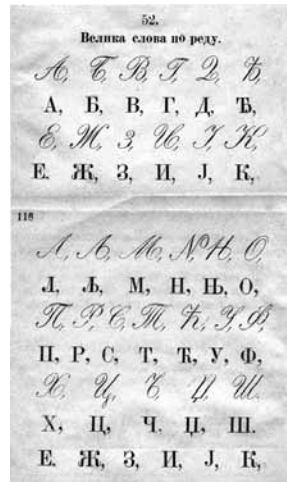 52.
Велика слова по реду.
А, Б, В, Г, Д, Ђ,
А, Б, В, Г, Д, Ђ,
Е, Ж, З, И, Ј, К,
Е. Ж, З, И, Ј, К,
116
Л, Љ, М, Н, Њ, О,
Л, Љ, М, Н, Њ, О,
П, Р, С, Т, Ћ, У, Ф,
П, Р, С, Т, Ћ, У, Ф,
Х, Ц, Ч, Џ, Ш.
Х, Ц, Ч, Џ, Ш.
Е. Ж, З, И, Ј, К,